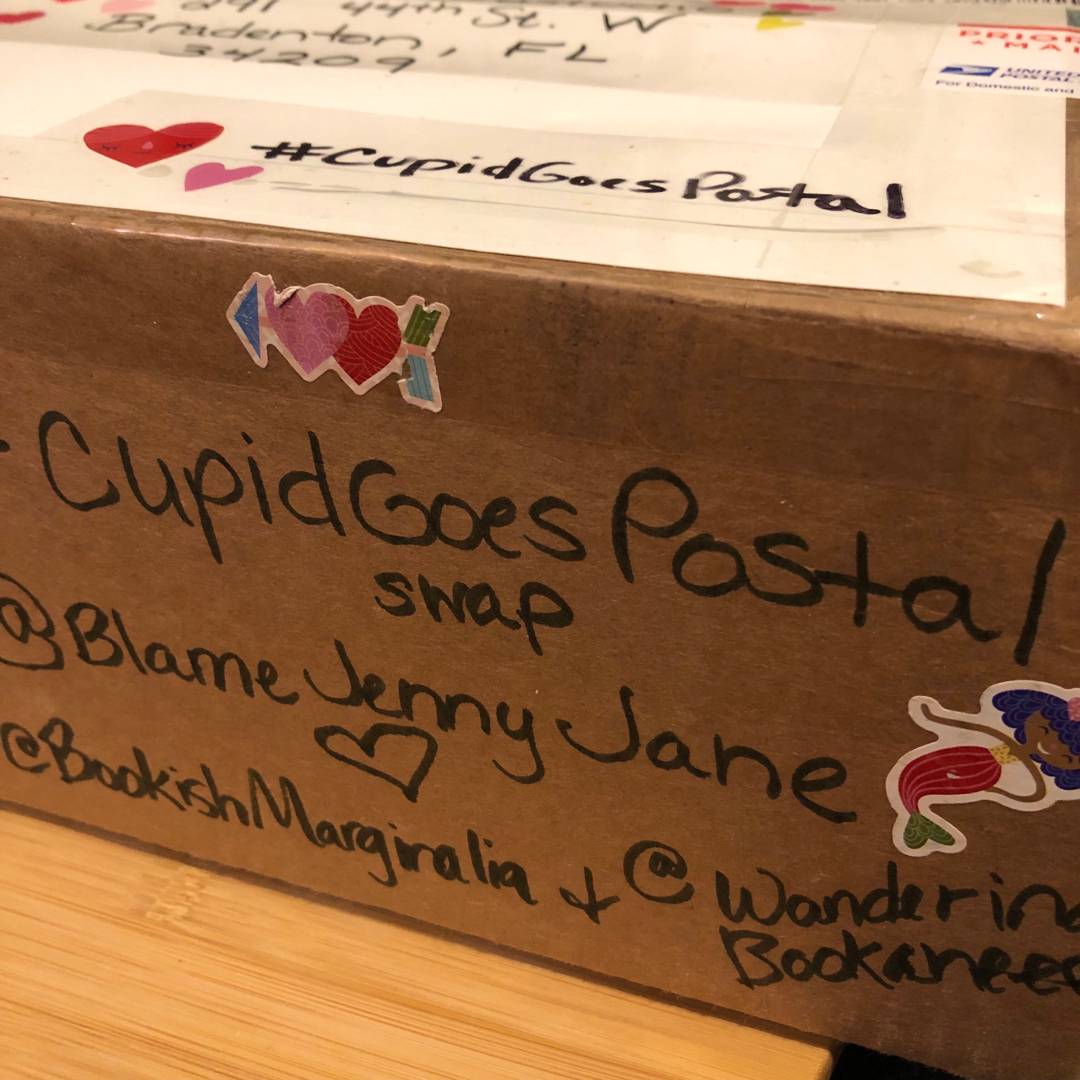 44th St. W
Bradenton, FL
34209
PRIOR
MAI
UNITED
POSTAL
For Domestic and
#CupidGoesPostal
CupidGoesPostal
swap
@BlameJennyJane
@BookishMarginalia + @Wanderin
Bookanee